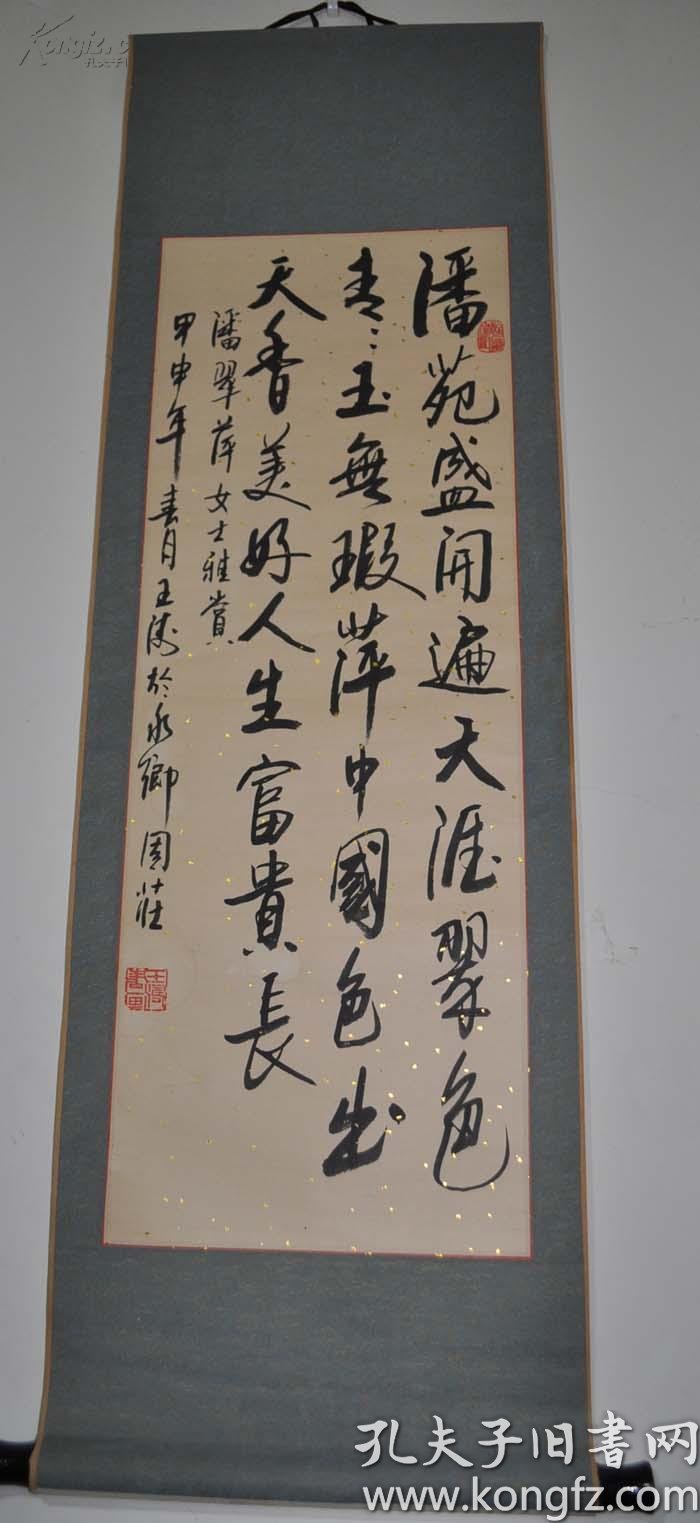 潘苑盛開遍天涯翠色
青:玉無瑕萍中國色出
天香美好人生富貴長
潘翠萍女士雅賞
甲申年春月王濤於水鄉周莊
孔夫子旧書网
www.kongfz.com